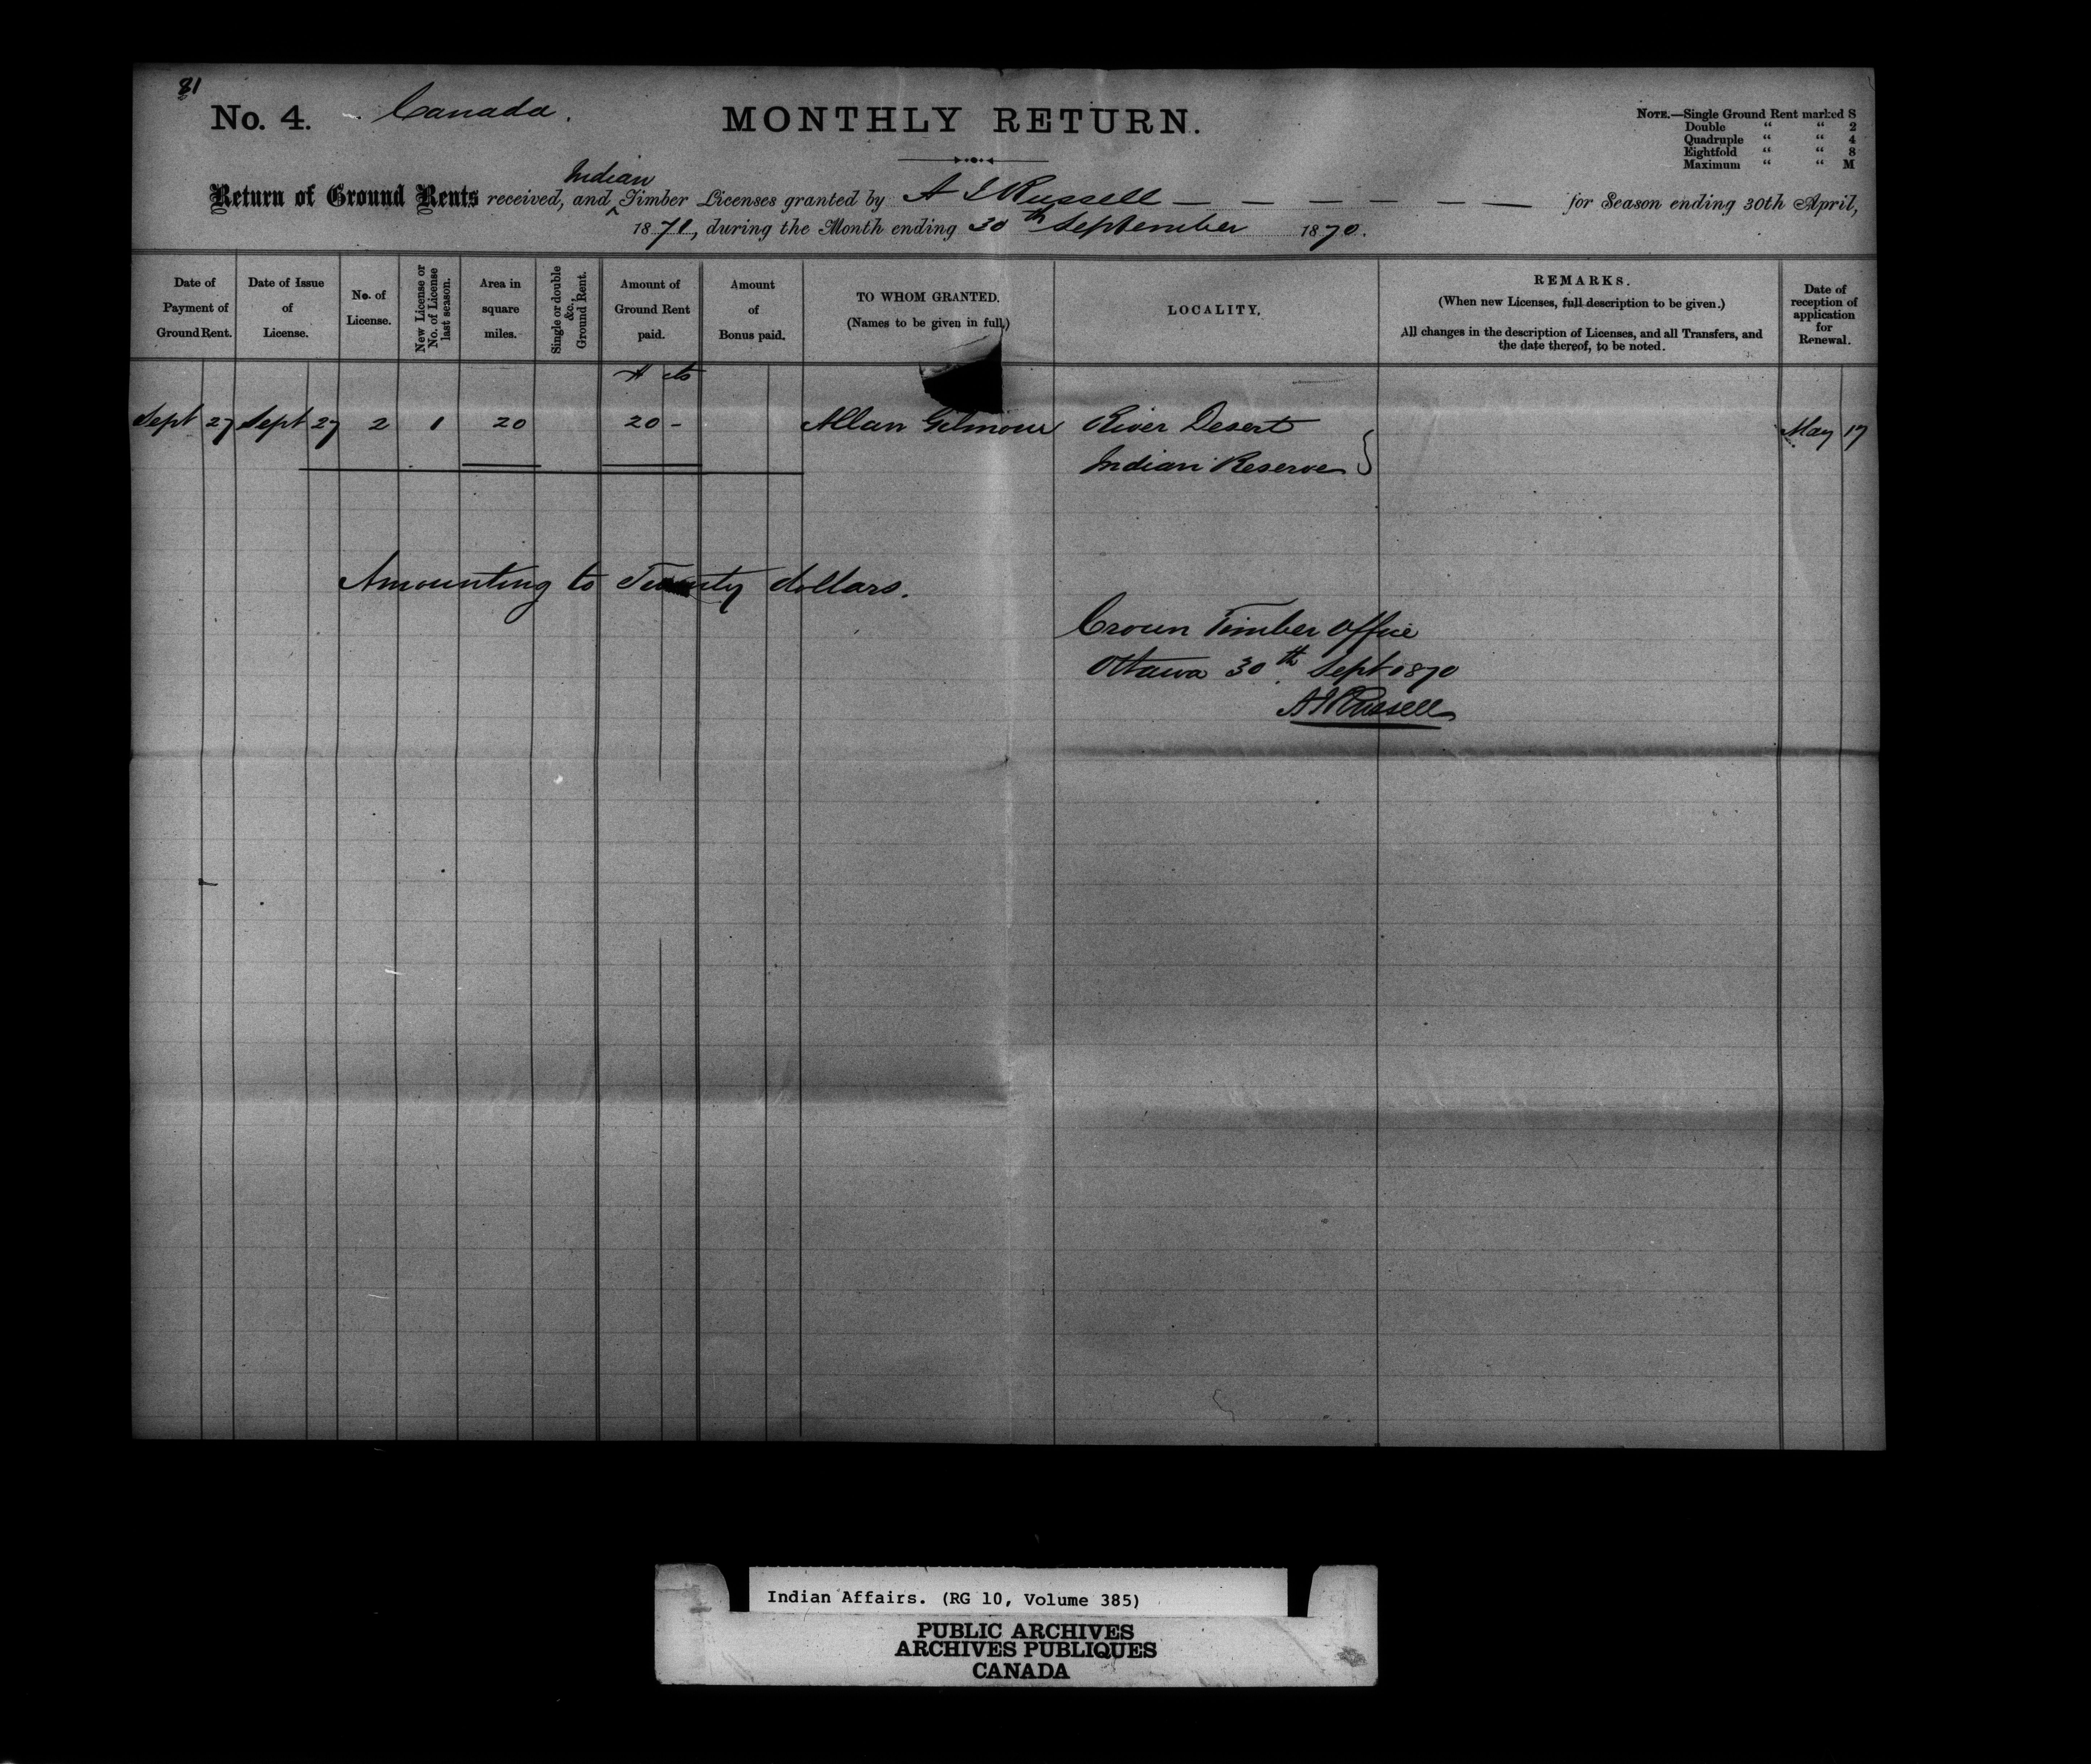 81
No. 4. Canada. MONTHLY RETURN.
NOTE.—Single Ground Rent marked S
Double “ “ 2
Quadruple “ “ 4
Eightfold “ “ 8
Maximum “ “ M
Indian
Return of Ground Rents received, and ^ Timber Licenses granted by A J Russell — — — — — — — for Season ending 30th April,
1871, during the Month ending 30th September 1870.
Date of Payment of Ground Rent.
Date of Issue of License.
No. of License.
New License or No. of License last season.
Area in square miles.
Single or double &c., Ground Rent.
Amount of Ground Rent paid.
Amount of Bonus paid.
TO WHOM GRANTED. (Names to be given in full.)
LOCALITY.
REMARKS.
(When new Licenses, full description to be given.)
All changes in the description of Licenses, and all Transfers, and
the date thereof, to be noted.
Date of reception of application for Renewal.
$ cts
Sept 27 Sept 27 2 1 20 20 - Allan Gilmour River Desert May 17
Indian Reserve
Amounting to Twenty dollars.
Crown Timber Office
Ottawa 30th Sept 1870
A J Russell
Indian Affairs. (RG 10, Volume 385)
PUBLIC ARCHIVES
ARCHIVES PUBLIQUES
CANADA